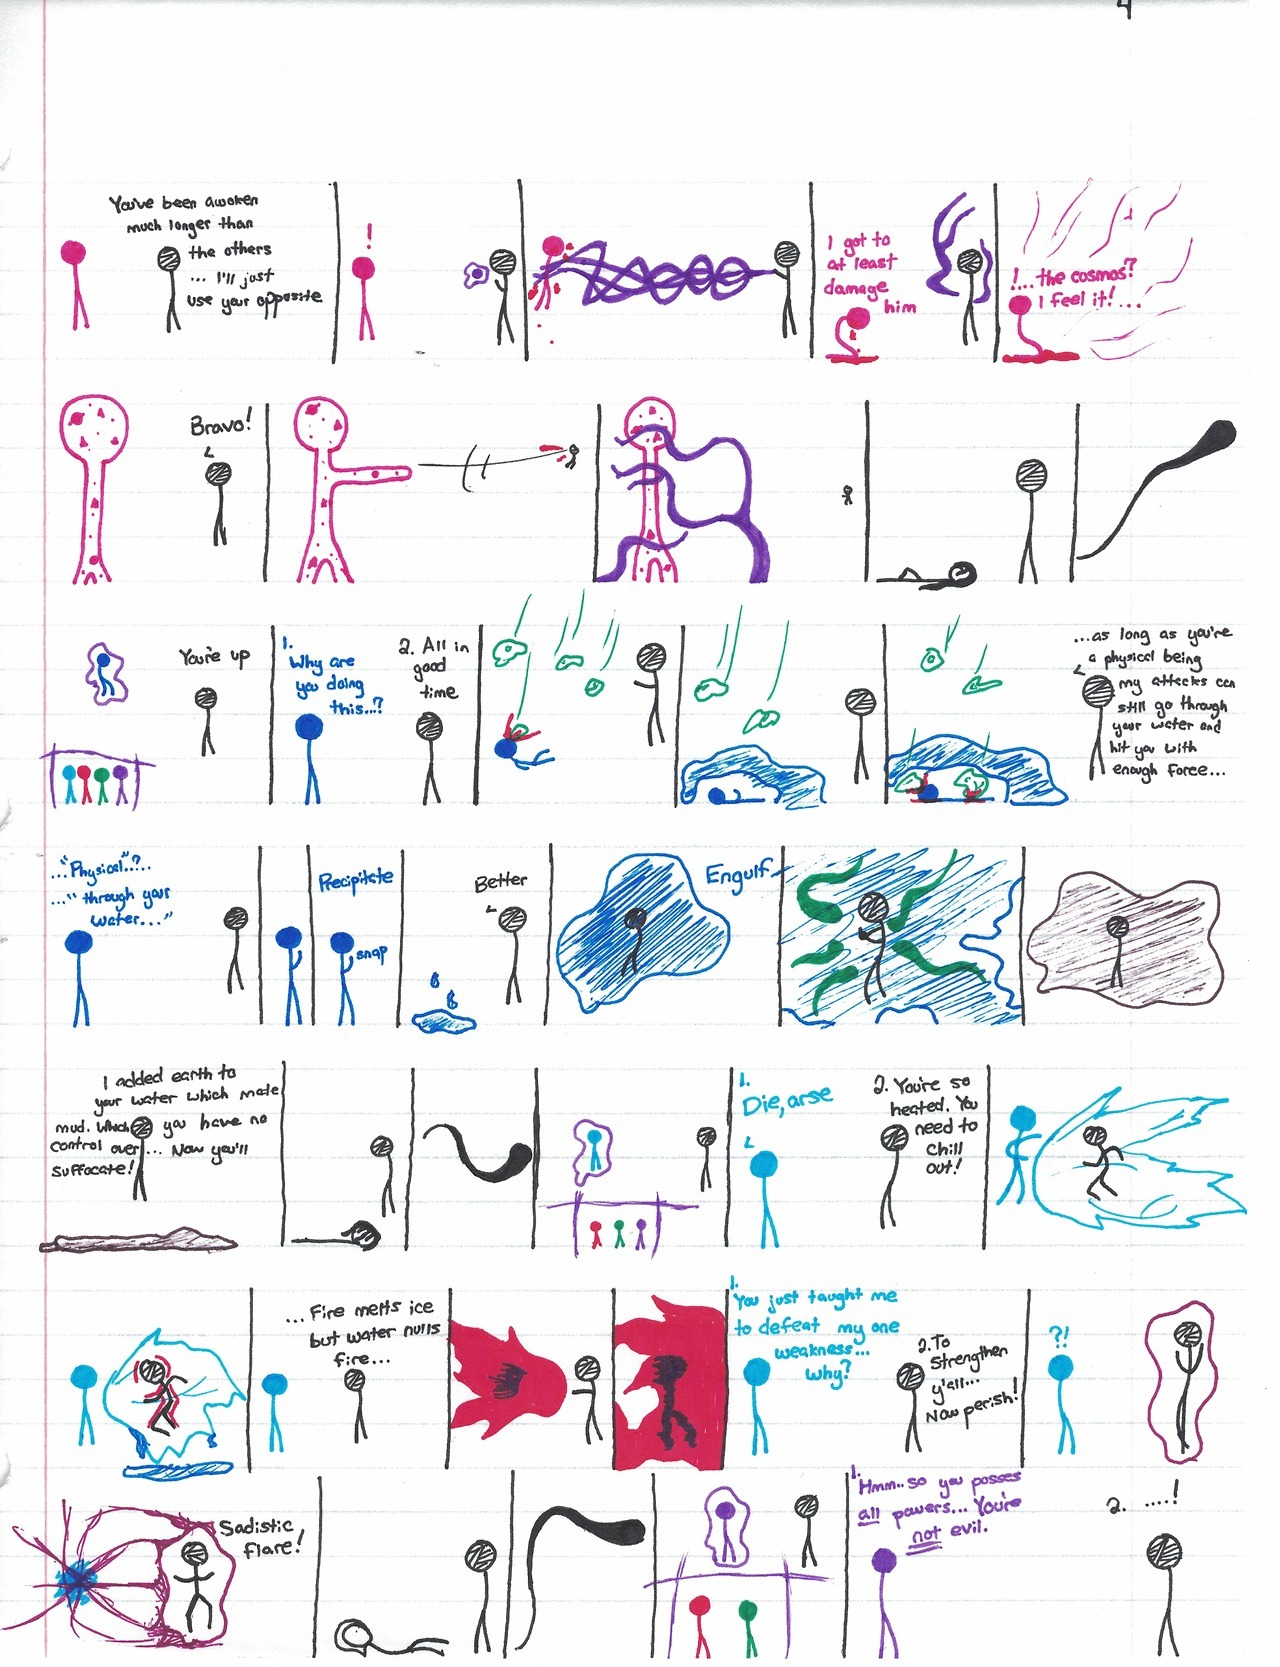 4
You've been awoken
much longer than
the others
... I'll just
use your opposite
!
I got to
at least
damage
him
!...the cosmos?
I feel it!...
Bravo!
You're up
1.
Why are
you doing
this...?
2. All in
good
time
...as long as you're
a physical being
my attacks can
still go through
your water and
hit you with
enough force...
..."Physical"?...
..."through your
water..."
Precipitate
snap
Better
Engulf
I added earth to
your water which made
mud. Which you have no
control over... Now you'll
suffocate!
1.
Die, arse
2. You're so
heated. You
need to
chill
out!
...Fire melts ice
but water nulls
fire...
1.
You just taught me
to defeat my one
weakness...
why?
2. To
Strengthen
y'all...
Now perish!
?!
Sadistic
flare!
1.
Hmm.. so you posses
all powers... You're
not evil.
2. ....!